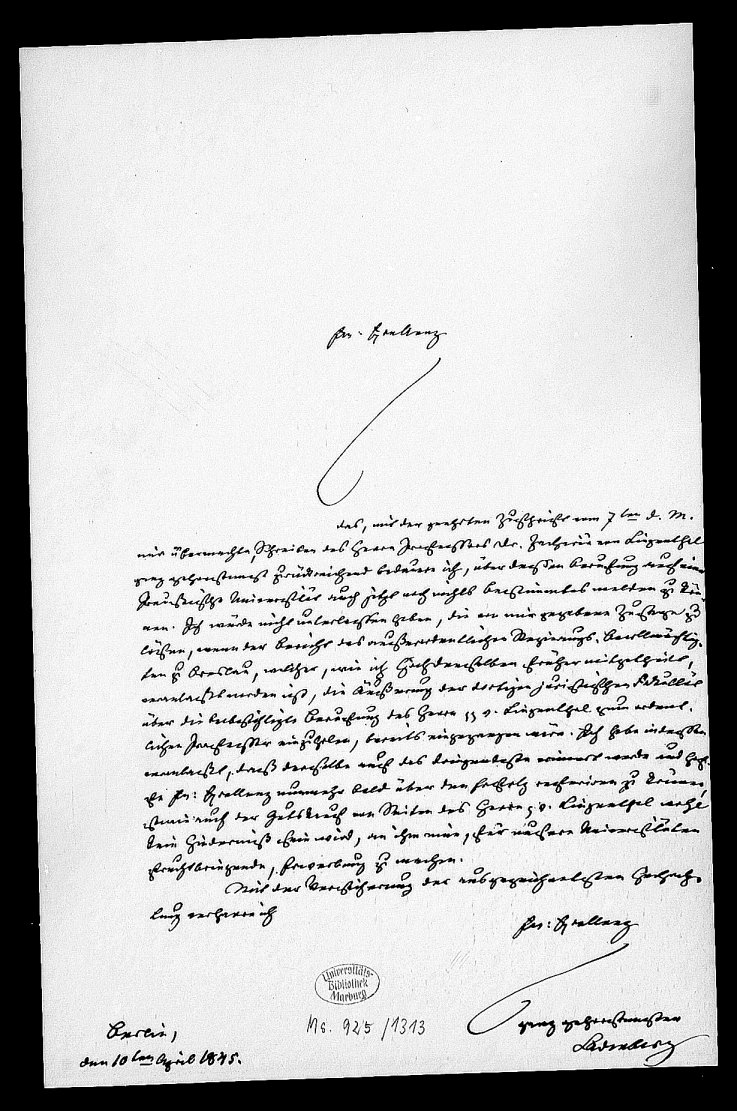 Ew: Excellenz
das, mit der geehrten Zuschrift vom 7ten d. M.
mir übermachte, Schreiben des Herrn Professors Dr. Zachariä von Lingenthal
ganz gehorsamst zurückreichend bedaure ich, über dessen Berufung nach einer
Preußischen Universität auch jetzt noch nichts bestimmtes melden zu kön-
nen. Ich würde nicht unterlassen haben, die von mir gegebene Zusage zu
lösen, wenn der Bericht des außerordentlichen Regierungs-Bevollmächtig-
ten zu Breslau, welcher, wie ich Hochdenselben früher mitgetheilt,
veranlaßt worden ist, die Äußerung der dortigen juristischen Fakultät
über die beabsichtigte Berufung des Herrn v. Lingenthal zum ordent-
lichen Professor einzuholen, bereits eingegangen wäre. Ich habe indessen
veranlaßt, daß derselbe auf das dringendste erinnert werde und hoffe
Ew: Excellenz nunmehr bald über den Erfolg zu können,
auch der von Seiten des Herrn v. Lingenthal wohl
kein Hinderniß sein wird, an ihm eine, für unsere Universitäten
fruchtbringende, Erwerbung zu machen.
Mit der Versicherung der ausgezeichnetesten Hochach-
tung verharre ich
Ew: Excellenz
ganz gehorsamster
Ladenberg
Universitäts-
Bibliothek
Marburg
Ms. 925/1313
Berlin,
den 10ten April 1845.